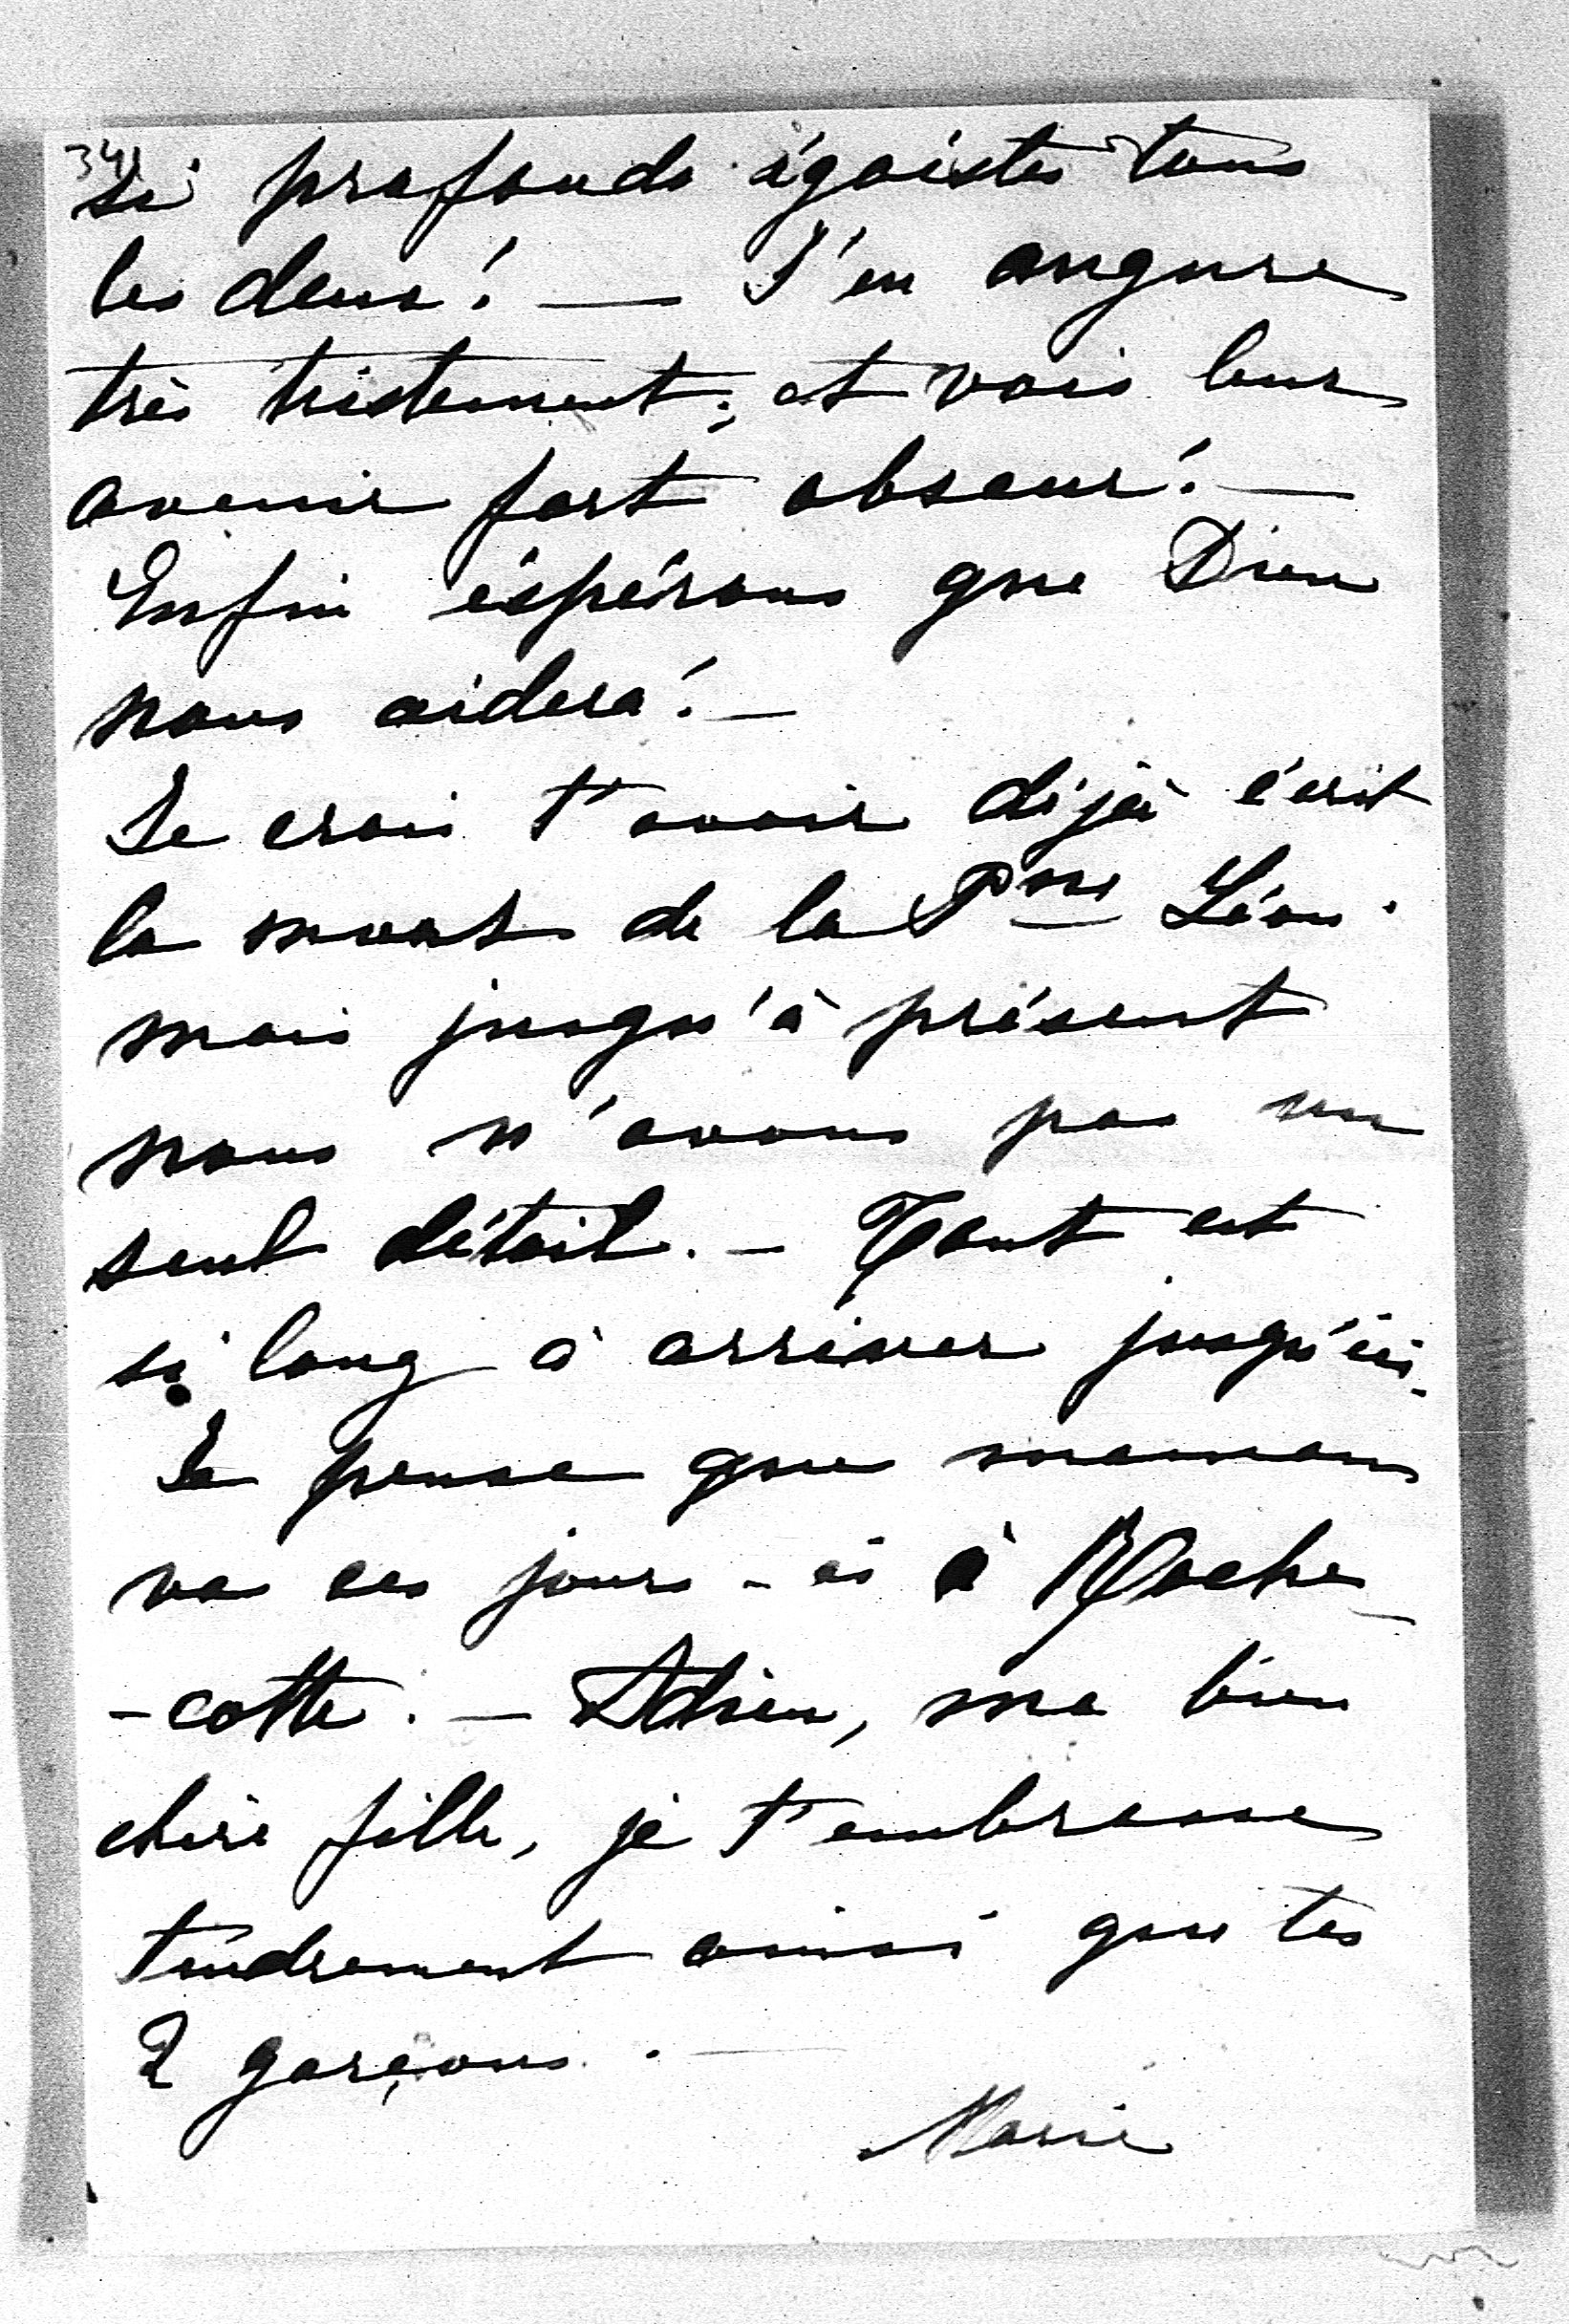 si profonds égoïstes tous
les deux! — J'en augure
très tristement; et vois leur
avenir fort obscur! —
Enfin éspérons que Dieu
nous aidera! —
Je crois t'avoir déjà écrit
la mort de la Psse Léon.
mais jusqu'à présent
nous n'avons pas un
seul détail. — Tout est
si long à arriver jusqu'ici.
Je pense que maman
va ces jours-ci à Roche-
-cotte. — Adieu, ma bien
chère fille, je t'embrasse
tendrement ainsi que tes
2 garçons. —
Marie